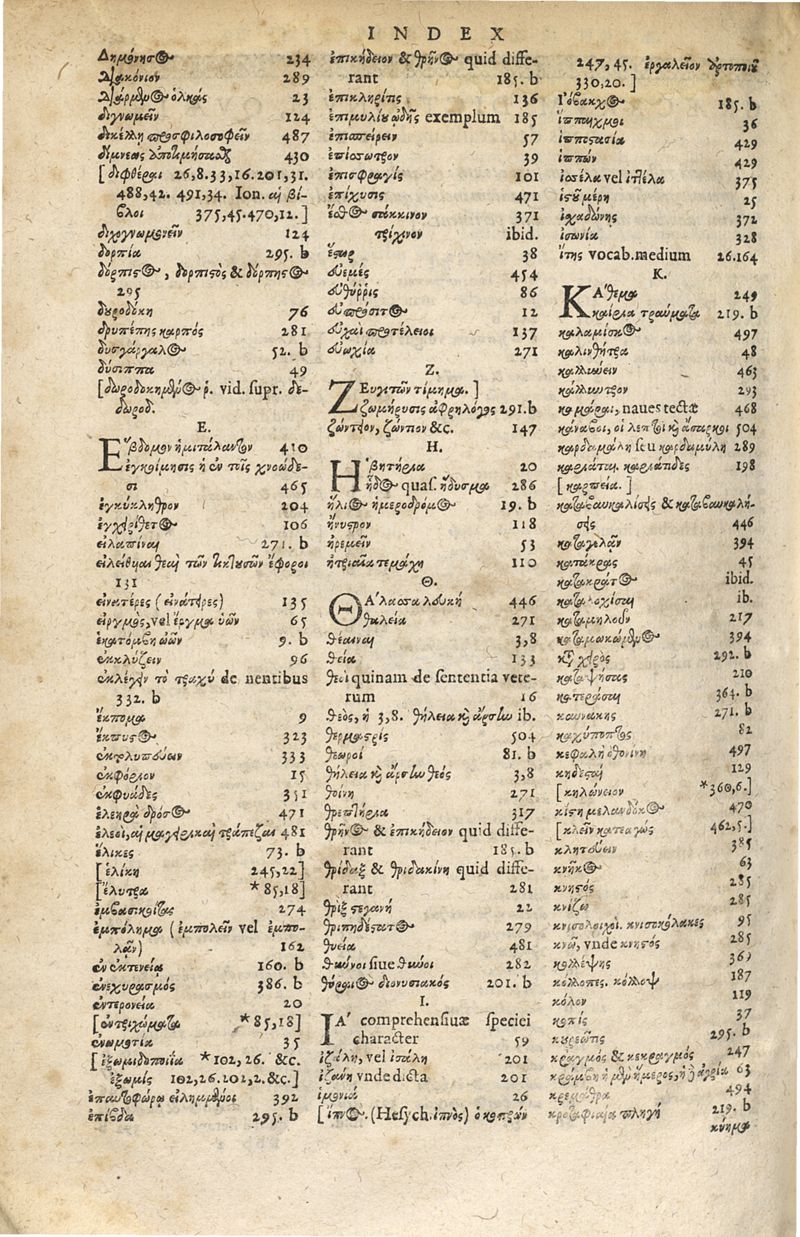 INDEX
Δημόνησος 234
Διακόνιον 289
Διάρμενος ὁλκάς 23
διγνωμεῖν 124
δικέλλῃ προσφιλοσοφεῖν 487
430
[διφθέραι 26,8.33,16.201,31.
488,42. 491,34. Ion. αἱ βί-
βλοι 375,45.470,12.]
διχογνωμονεῖν 124
δορπία 295. b
δόρπιος, δορπιστὸς & δόρπηστος
295
δουροδόκη 76
δρυπέπης καρπός 281
δυσγάργαλος 52. b
δύσιππα 49
[δωροδοκημένος ῥ. vid. supr. δε-
δωροδ.
E.
Εβδομον ἡμιτάλαντον 410
ἐγκοίμησις ἡ ἐν τοῖς χνοώδε-
σι 465
ἐγκύκληθρον 204
ἐγχειρίθετος 106
εἰλαπίναι 271. b
εἰλείθυιαι θεαὶ τῶν τικτουσῶν ἔφοροι
131
εἰνατέρες (εἰνάτειρες) 135
εἱργμὸς, vel ἕργμα ὑῶν 65
ἑκατόμβη ὠῶν 9. b
ἐκκλύζειν 96
ἐκλέγειν τὸ τραχὺ de nentibus
332. b
ἔκπομα 9
ἔκπυστος 323
ἐκρυπτεύειν 333
ἐκφόριον 15
ἐκφυάδες 351
ἐλεηρὰ δρόσος 471
ἐλεοὶ, αἱ μαγειρικαὶ τράπεζαι 481
ἕλικες 73. b
[ἑλίκη 245,22]
[ἔλυτρα *85,18]
ἐμβασικοίτας 274
ἐμπόλημα (ἐμπολεῖν vel ἐμπο-
λᾶν) 162
ἐν ἐκτενείᾳ 160. b
ἐνεχυρασμός 386. b
ἐντερονεία 20
[ἐντριχώματα *85,18]
ἐνωμοτία 35
[ἐξωμιδοποιΐα *102,26. &c.
ἐξωμίς 102,26.201,2.&c.]
ἐπαυτοφώρῳ εἰλημμένοι 392
ἐπίβδα 295. b
ἐπικήδειον & θρῆνος quid diffe-
rant 185. b
ἐπικληρίτης 136
ἐπιμυλίου ᾠδῆς exemplum 185
ἐπισπείρειν 57
ἐπίσωτρον 39
ἐπισφραγίς 101
ἐπίχυσις 471
ἐσθὸς κόκκινον 371
τρίχινον ibid.
ἔστωρ 38
εὐεμές 454
εὔθυρρις 86
εὐπρόσιτος 12
εὐχαὶ προτέλειοι 137
εὐωχία 271
Z.
Ζευγιτῶν τίμημα.]
ζωμήρυσις ἀφρηλόγος 291.b
ζώντειον, ζώντιον &c. 147
H.
Ηβητήρια 20
ἦδος quas. ἥδυσμα 286
ἥλιος ἡμεροδρόμος 19. b
ἤνυστρον 118
ἠρεμεῖν 53
ἠτριαῖα τεμάχη 110
Θ.
ΘΑλασσα λευκή 446
θάλεια 271
θέαιναι 3,8
θεία 133
θεοὶ quinam de sententia vete-
rum 16
θεὸς, ἡ 3,8. θήλεια καὶ ἄρσην ib.
θερμαστρίς 504
θεωροί 81. b
θήλεια καὶ ἄρσην θεός 3,8
θοίνη 271
θρεπτήρια 317
θρῆνος & ἐπικήδειον quid diffe-
rant 185. b
θρίδαξ & θριδακίνη quid diffe-
rant 281
θρὶξ τεγανή 22
θριπηδέστατος 279
θυεία 481
θῶνοι siue θῶοι 282
θύραιος διονυσιακός 201. b
I.
ΙΑ' comprehensiuæ speciei
character 59
ἰξάλη, vel ἰσάλη 201
ἰζάνη vnde dicta 201
ἱμονιά 26
[ἴπνος. (Hesych. ἰπνὸς) ὁ κοπρών
247,45. ἐργαλεῖον ἀρτοποιοῦ
330,20.]
Ιόβακχος 185. b
ἵππαιχμοι 36
ἱπποστασία 429
ἱππών 429
ἰσέλα vel ἰτέλα 375
ἰσομέρη 25
ἰσχαδώνης 372
ἰσωνία 328
ἴτης vocab. medium 26.164
K.
ΚΑθεμα 249
καίρια τραύματα 219. b
καλαμίσκος 497
καλινδήθρα 48
καλλωειν 463
κάλλυντρον 293
καμάραι, naues tectæ 468
κάναβοι, οἱ λεπτοὶ καὶ ἄσαρκοι 504
καρδαμάλη seu καρδαμύλη 289
καρβάται, καρβάτιδες 198
[καρπεία.]
καταβαυκαλίσεις & καταβαυκαλή-
σεις 446
καταγελᾶν 394
κατάκρας 45
κατάκρατος ibid.
καταλοχίσαι ib.
καταμηλοῦν 217
καταμωκώμενος 394
κατὰ χειρός 292. b
καταψῆσαι 210
κατεράσαι 364. b
καυνάκης 271. b
καχύποπτος 82
κεφαλὴ ὀθονίνη 497
κηδεσταί 129
[κηλώνειον *360,6.]
κίστη μελανδόκος 470
[κλεῖν κατεαγώς 462,5.]
κλητεύειν 385
κνῆκος 63
κνηστός 285
κνίζω 285
κνισολοιχοί. κνισοκόλακες 95
κνῶ, vnde κνηστός 285
κολλέψης 369
κόλλοπες. κόλλοψ 187
κόλον 119
κοπίς 37
κουρεῶτις 295. b
κραγμὸς & κεκραγμός 247
κράμβη ἡ μὲν ἥμερος, ἡ δ' ἀγρία 63
κρεμάθρα 494
κροταφιαία πληγή 219. b
κύημα